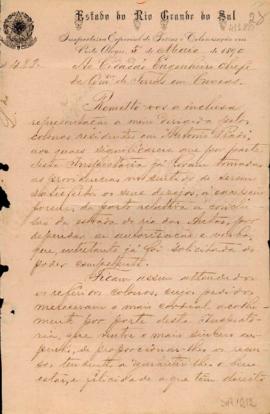 Estado do Rio Grande do Sul
Inspectoria Especial de Terras e Colonisação em
Porto Alegre, 5 de Março de 1890
Nº 422.
Ao Cidadão Engenheiro Chefe
da Com. de Terras em Caxias
Remetto-vos a inclusa
representação a mim dirigida pelos
colonos residentes em Antonio Prado,
aos quaes significareis que por parte
desta Inspectoria já foram tomadas
as providencias no sentido de serem
satisfeitos os seus desejos, á excepção
porem, da parte relativa á
da estrada do rio das Antas, por
depender de autorização e verba,
que, entretanto já foi solicitada do
poder competente.
Ficam assim attendidos
os referidos colonos, cujos pedidos
mereceram o mais cordial acolhi-
mento por parte desta Inspecto-
ria, que nutre o mais sincero
empenho de proporcionar-lhes os recur-
sos tendentes a garantir-lhes o bem
estar, e felicidade a que têm direito